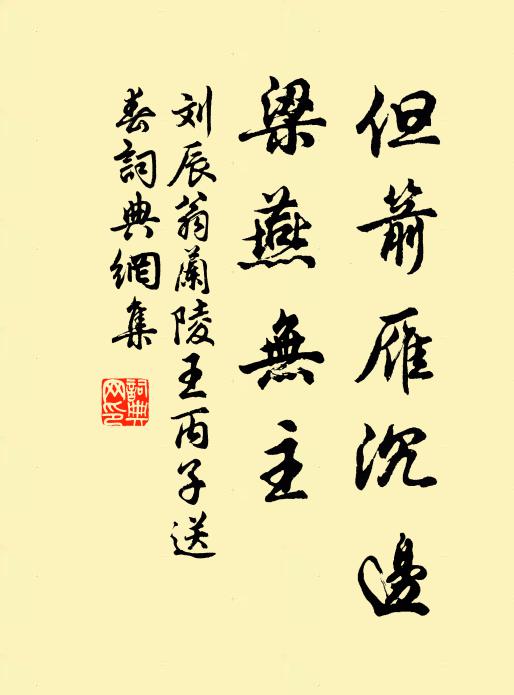 但箭雁沉邊
梁燕無主
刘辰翁蘭陵王丙子送
春詞典網集
詞典
网印